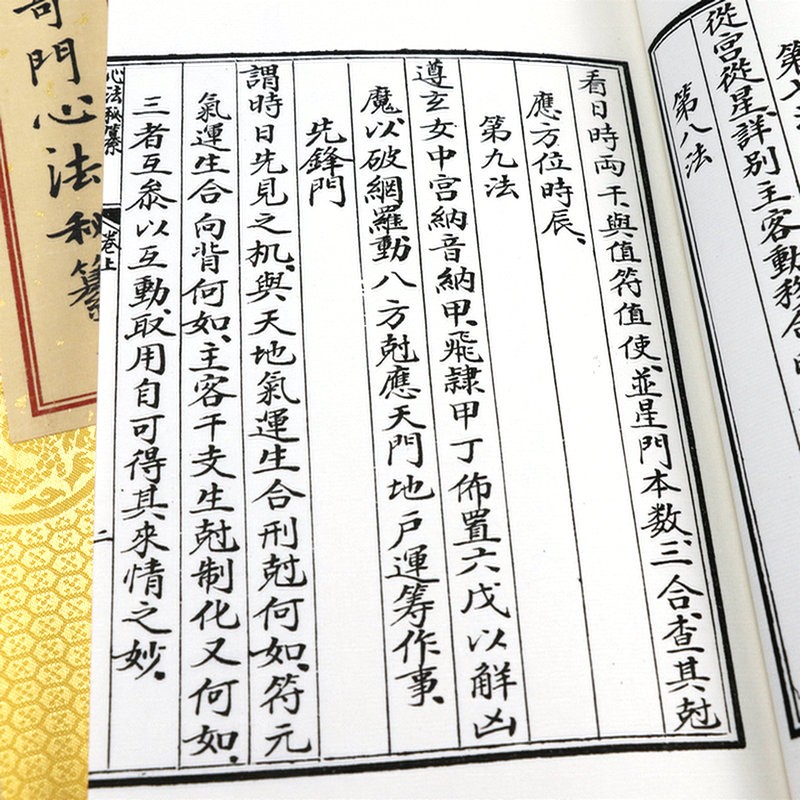 第
從宮從星、詳別主客動移合
第八法
看日時両干與值符值使、並星門本數、三合、查其尅
應方位時辰、
第九法
遵玄女中宮納音納甲、飛隸甲丁佈置六戊以解凶
魔、以破網羅動八方尅應天門地户運筹作事、
先鋒門
謂時日先見之机、與天地氣運生合刑尅何如、符元
氣運生合向背何如、主客干支生尅制化又何如、
三者互叅以互動、取用自可得其來情之妙、
心法秘纂 卷上 二
奇門心法秘纂